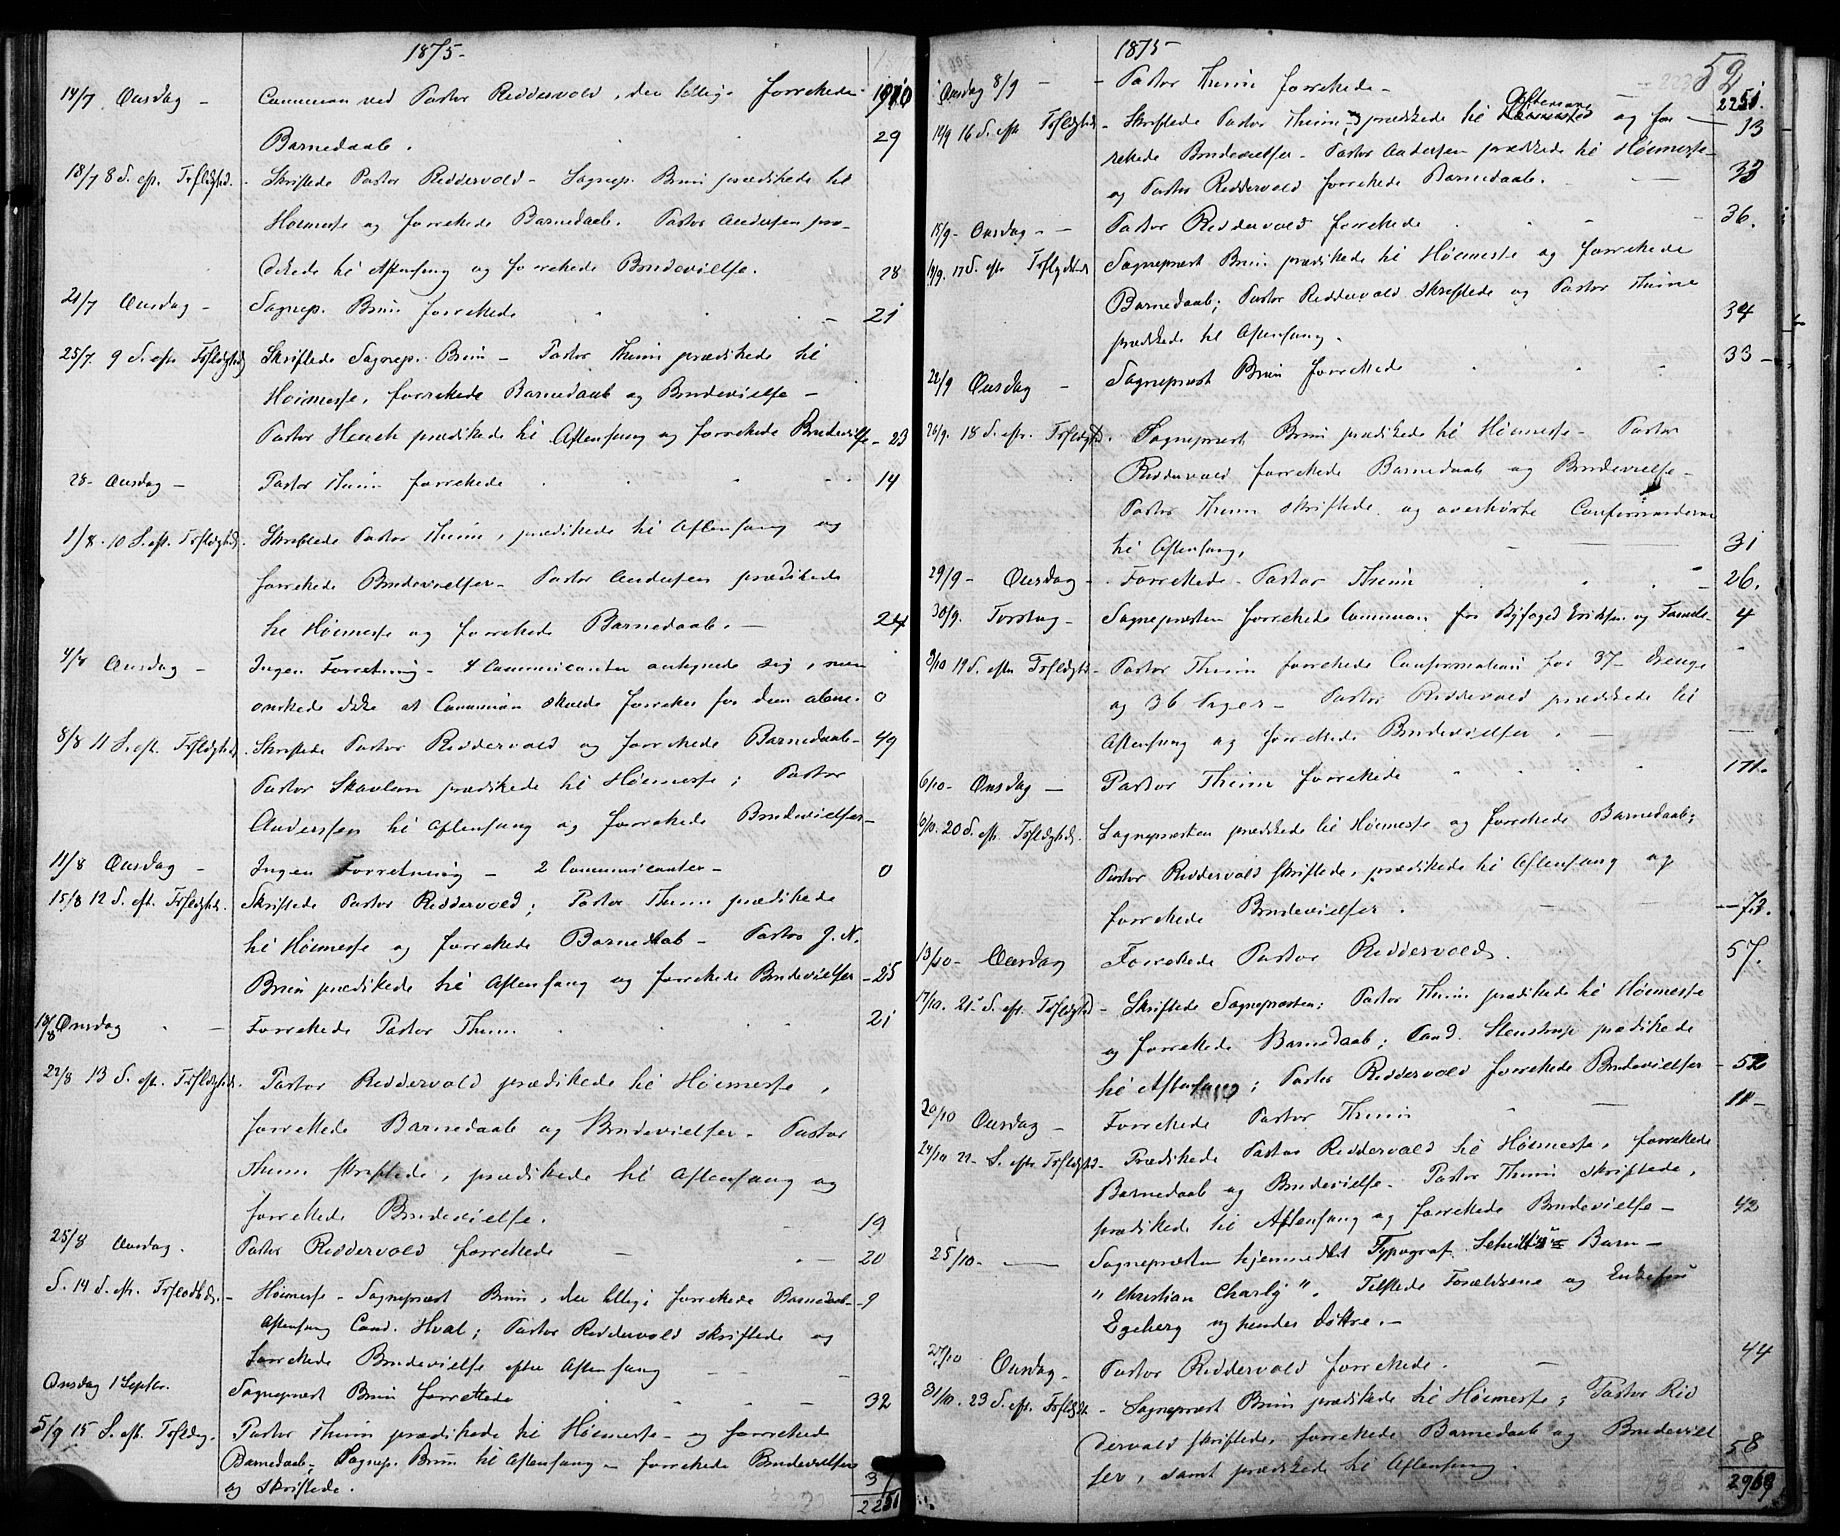 1875.
14/7 Onsdag – Communion ved Pastor Riddervold, der tillige forrettede 1910
Barnedaab. 29
18/7 8 S. eft. Trefligshed. Skriftede Pastor Riddervold – Sognep. Bruun prædikede til
Høimesse og forrettede Barnedaab. Pastor Andersen præ-
dikede til Aftensang og forrettede Brudevielse. 28
21/7 Onsdag – Sognep. Bruun forrettede – 21
25/7 9 S. eft. Trefligshed Skriftede Sognep. Bruun – Pastor Thurm prædikede til
Høimesse, forrettede Barnedaab og Brudevielse –
Pastor Heuch prædikede til Aftensang og forrettede Brudevielse – 23
28– Onsdag – Pastor Thurm forrettede 14
1/8. 10 S. eft. Trefligshed. Skriftede Pastor Thurm, prædikede til Aftensang og
forrettede Brudevielser – Pastor Andersen prædikede
til Høimesse og forrettede Barnedaab. – 24
4/8 Onsdag – Ingen Forretning – 4 Communicanter antegnede sig, men
ønskede ikke at Communion skulde forrettes for dem alene. 0
8/8 11 S. eft. Trefligshed. Skriftede Pastor Riddervold og forrettede Barnedaab – 49
Pastor Skavlan prædikede til Høimesse; Pastor
Anderssen til Aftensang og forrettede Brudevielser –
11/8 Onsdag – Ingen Forretning – 2 Communicanter – 0
15/8 12 S. eft. Trefligshed. Skriftede Pastor Riddervold; Pastor Thurm prædikede
til Høimesse og forrettede Barnedaab – Pastor J. N.
Bruun prædikede til Aftensang og forrettede Brudevielser – 25
18/8 Onsdag – Forrettede Pastor Thurm 21
22/8 13 S. eft. Trefligshed. Pastor Riddervold prædikede til Høimesse,
forrettede Barnedaab og Brudevielser – Pastor
Thurm skriftede, prædikede til Aftensang og
forrettede Brudevielse. 19
25/8 Onsdag. Pastor Riddervold forrettede – 20
S. 14 S. eft. – Høimesse – Sognepræst Bruun, der tillige forrettede Barnedaab – 9
Aftensang Cand. Hval; Pastor Riddervold skriftede og
forrettede Brudevielse efter Aftensang
Onsdag 1 Septbr. Sognepræst Bruun forrettede – 32
5/9 15 S. eft. Pastor Thurm prædikede til Høimesse – og forrettede
Barnedaab; Sognep. Bruun til Aftensang – forrettede Brudevielser
og skriftede.
2251
1875 52
Onsdag 8/9 – Pastor Thurm forrettede – 2251.
12/9 16 S. eft. – Skriftede Pastor Thurm, og prædikede til Aftensang og for- 13
rettede Brudevielser – Pastor Andersen prædikede til Høimesse –
og Pastor Riddervold forrettede Barnedaab. – 33
15/9 – Onsdag – Pastor Riddervold forrettede 36.
19/9. 17 S. efter Sognepræst Bruun prædikede til Høimesse og forrettede
Barnedaab; Pastor Riddervold skriftede og Pastor Thurm
prædikede til Aftensang. 34
22/9 Onsdag – Sognepræst Bruun forrettede 33 –
26/9. 18 S. eft. Sognepræst Bruun prædikede til Høimesse – Pastor
Riddervold forrettede Barnedaab og Brudevielse –
Pastor Thurm skriftede og overhørte Confirmanderne
til Aftensang. 31
29/9 – Onsdag – Forrettede Pastor Thurm 26.
30/9. Torsdag – Sognepræsten forrettede Communion for Byfoged Eriksen og Familie – 4
3/10 19 S. efter – Pastor Thurm forrettede Confirmation for 37 Drenge
og 36 Piger – Pastor Riddervold prædikede til
Aftensang og forrettede Brudevielser. –
6/10 – Onsdag – Pastor Thurm forrettede 171.
20 S. eft. Sognepræsten prædikede til Høimesse og forrettede Barnedaab;
Pastor Riddervold skriftede, prædikede til Aftensang og
forrettede Brudevielser. – 73.
13/10 – Onsdag Forrettede Pastor Riddervold. 57.
17/10. 21 S. eft. – Skriftede Sognepræsten; Pastor Thurm prædikede til Høimesse
og forrettede Barnedaab; Cand. Stenstrup prædikede
til Aftensang; Pastor Riddervold forrettede Brudevielser – 52
20/10 Onsdag – Forrettede Pastor Thurm – 11 –
24/10 S. efter – Prædikede Pastor Riddervold til Høimesse, forrettede
Barnedaab og Brudevielse – Pastor Thurm skriftede,
prædikede til Aftensang og forrettede Brudevielse – 42
25/10. – Sognepræsten hjemmedøbt Typograf Barn –
"Christian Charly". Tilstede Forældrene og Enkefru
Egeberg og hendes Døttre. –
27/10 Onsdag. Pastor Riddervold forrettede. – 44
31/10. 23 S. eft. – Sognepræst Bruun prædikede til Høimesse; Pastor Rid
dervold skriftede, forrettede Barnedaab og Brudeviel
ser, samt prædikede til Aftensang. 58
2969